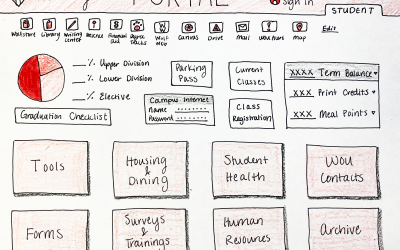 PORTAL
Sign in
STUDENT
Library
Writing Center
Financial Aid
Canvas
Drive
Mail
Map
Edit
__% Upper Division
__% Lower Division
__% Elective
Graduation Checklist
Parking Pass
Campus Internet
Name
Password
Current Classes
Class Registration
XXXX Term Balance
XXX Print Credits
XXX Meal Points
Tools
Housing & Dining
Student Health
WOU Contacts
Forms
Surveys & Trainings
Human Resources
Archive